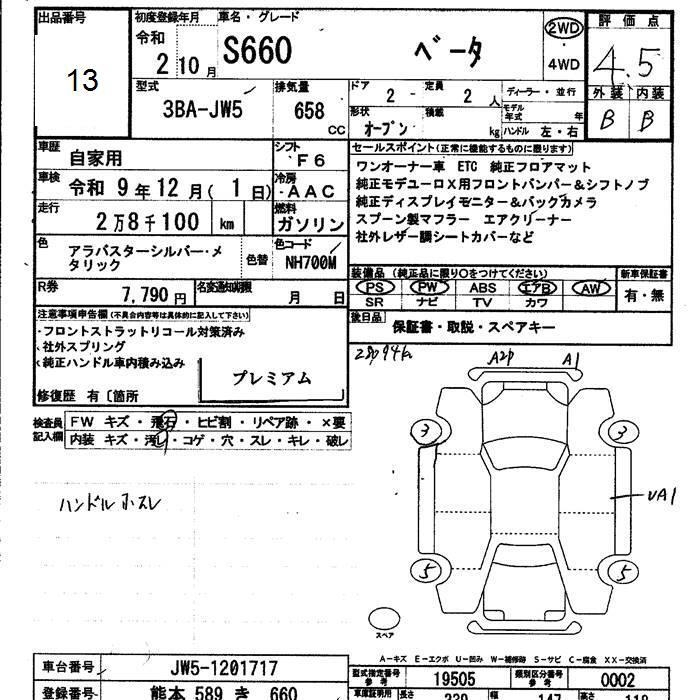 出品番号
13
初度登録年月
令和
2 10 月
車名・グレード
S660 ベータ
2WD
・
4WD
評価点
4.5
外装 内装
B B
型式
3BA-JW5
排気量
658
cc
ドア
2 -
定員
2 人
形状
オープン
積載
kg
ディーラー・並行
モデル年式 年
ハンドル 左・右
車歴
自家用
シフト
F6
車検
令和 9年 12月( 1日)
冷房
AAC
走行
2万8千100 km
燃料
ガソリン
色
アラバスターシルバー・メ
タリック
色替
色コード
NH700M
R券
7,790 円
名変通知期限
月 日
セールスポイント(正常に機能するものに限ります)
ワンオーナー車 ETC 純正フロアマット
純正モデューロX用フロントバンパー&シフトノブ
純正ディスプレイモニター&バックカメラ
スプーン製マフラー エアクリーナー
社外レザー調シートカバーなど
装備品 (純正品に限り〇をつけてください)
PS PW ABS エアB AW
SR ナビ TV カワ
新車保証書
有・無
後日品
保証書・取説・スペアキー
注意事項申告欄(不具合内容等は具体的に記入して下さい)
・フロントストラットリコール対策済み
社外スプリング
純正ハンドル車内積み込み
プレミアム
修復歴 有〔箇所
検査員
記入欄
FW キズ・飛石・ヒビ割・リペア跡・×要
内装 キズ・汚レ・コゲ・穴・スレ・キレ・破レ
ハンドル 小スレ
A2P A1
3 3
UA1
5 5
スペア
A-キズ E-エクボ U-凹み W-補修跡 S-サビ C-腐食 XX-交換済
車台番号
JW5-1201717
型式指定番号
参考
19505
類別区分番号
参考
0002
登録番号
熊本 589 き 660
車庫証明用
長さ
339
幅
147
高さ
118